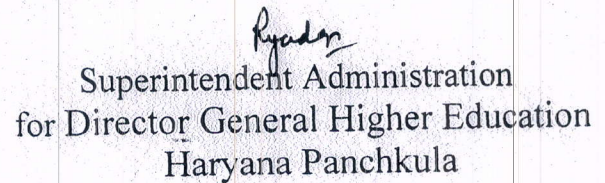 Superintendent Administration
for Director General Higher Education
Haryana Panchkula